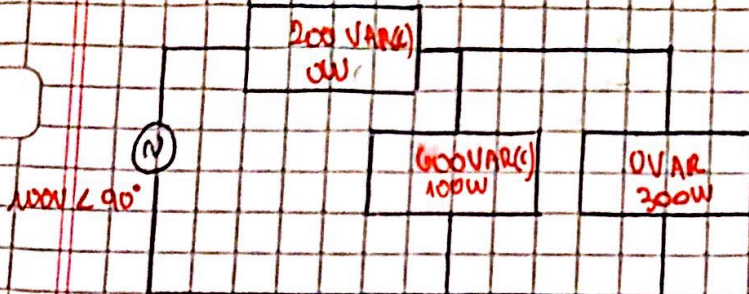 200 VAR(L)
0W
600VAR(C)
100W
0VAR
300W
100V < 90°